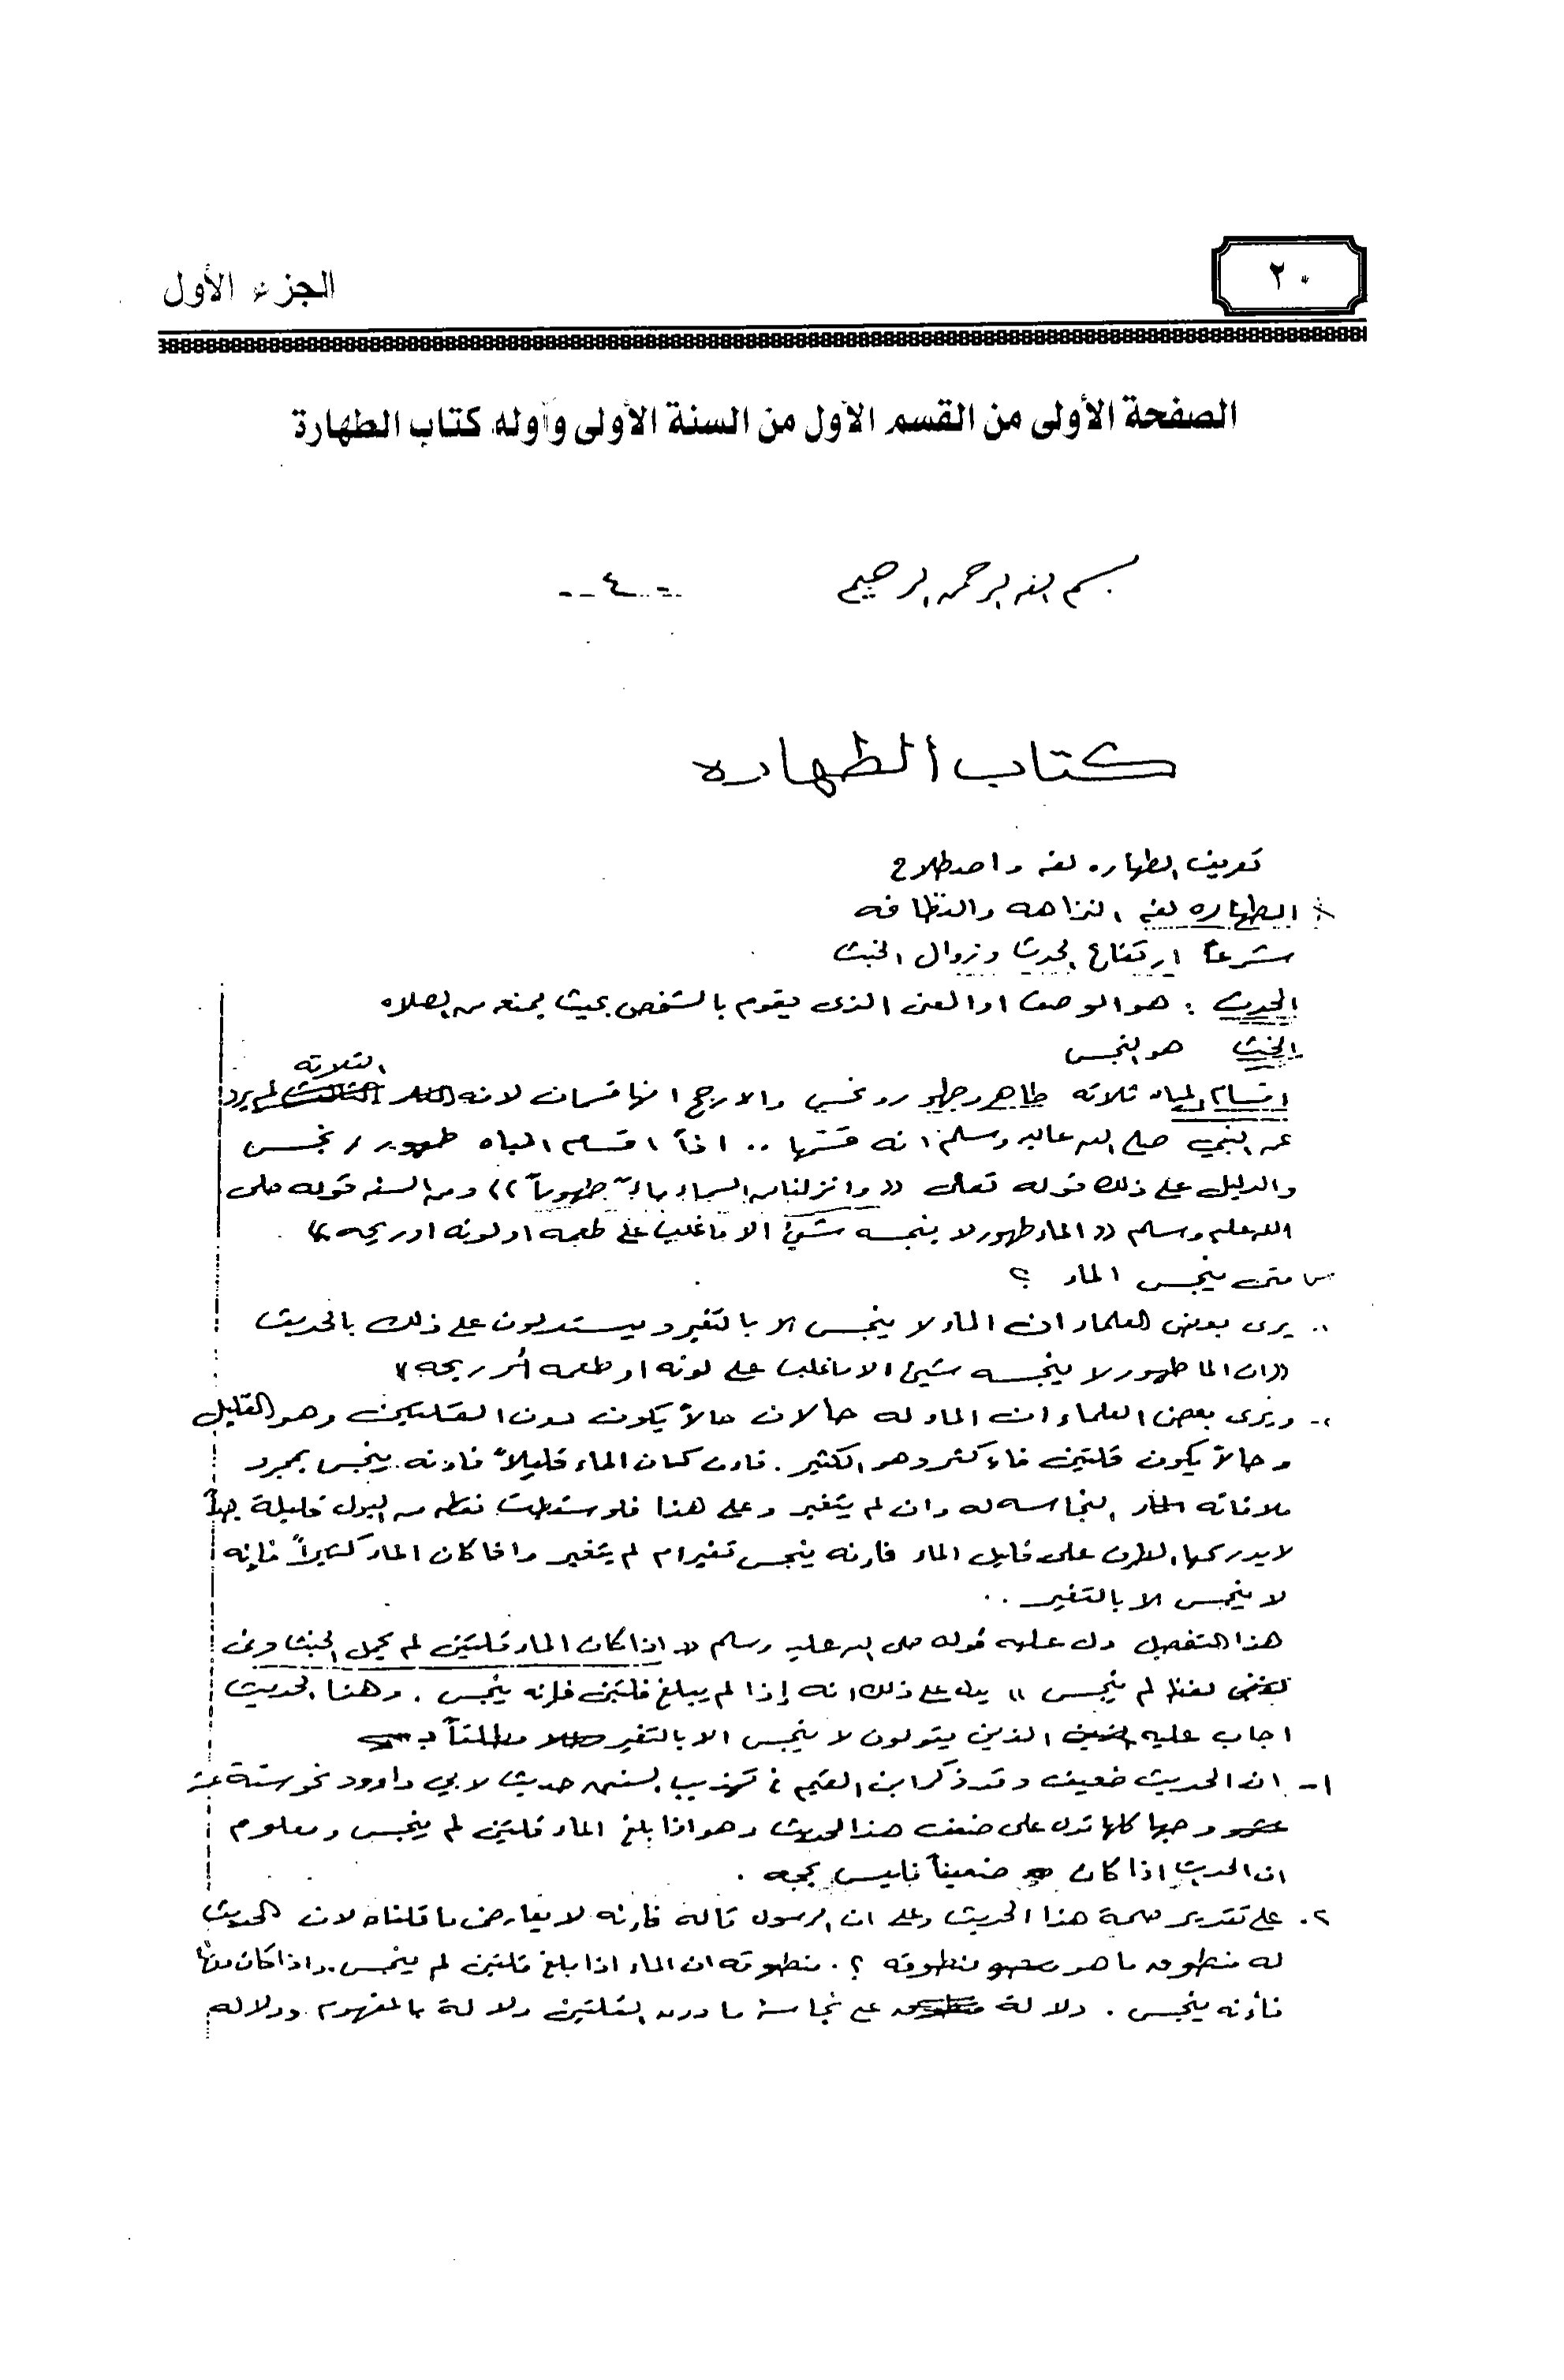 ٢٠
الجزء الأول
الصفحة الأولى من القسم الأول من السنة الأولى وأوله كتاب الطهارة
بسم الله الرحمن الرحيم
-- ٤ --
كتاب الطهاره
تعريف الطهاره لغه واصطلاح
الطهاره لغه النزاهه والنظافه
شرعاً ارتفاع الحدث وزوال الخبث
الحدث : هو الوصف او المعنى الذى يقوم بالشخص بحيث يمنعه من الصلاه
الخبث هو النجس
اقسام المياه ثلاثه طاهر وطهور ونجس والارجح انها قسمان لانه الثلاثه لم يرد
عن النبي صلى الله عليه وسلم انه قسمها .. اذاً اقسام المياه طهور / نجس
والدليل على ذلك قوله تعالى (( وانزلنا من السماء ماءً طهوراً )) ومن السنه قوله صلى
الله عليه وسلم (( الماء طهور لا ينجسه شئ الا ما غلب على طعمه او لونه او ريحه ))
س متى ينجس الماء ؟
١- يرى بعض العلماء ان الماء لا ينجس الا بالتغير ويستدلون على ذلك بالحديث
((ان الما طهور لا ينجسه شئ الا ما غلب على لونه او طعمه أو ريحه ))
٢- ويرى بعض العلماء ان الماء له حالان حالاً يكون دون القلتين وهو القليل
وحالاً يكون قلتين فاء كثر وهو الكثير . فان كان الماء قليلاً فانه ينجس بمجرد
ملاقاته النجاسه له وان لم يتغير وعلى هذا فلو سقطت نقطه من البول قليلة جداً
لا يدركها الطرف على قليل الماء فانه ينجس تغير ام لم يتغير واذا كان الماء كثيراً فإنه
لا ينجس الا بالتغير ..
هذا التفصيل دل عليه قوله صلى الله عليه وسلم (( اذا كان الماء قلتين لم يحمل الخبث وفى
لفظ لم ينجس )) يدل على ذلك انه إذا لم يبلغ قلتين فإنه ينجس . وهذا الحديث
اجاب عليه الذين يقولون لا ينجس الا بالتغير مطلقاً بـ
١- ان الحديث ضعيف وقد ذكر ابن القيم فى تهذيب السنن حديث لابي داوود نحو ستة عشر
وجها كلها تدل على ضعف هذا الحديث وهو اذا بلغ الماء قلتين لم ينجس ومعلوم
ان الحديث اذا كان ضعيفاً فليس بحجه .
٢- على تقدير صحة هذا الحديث وعلى ان الرسول قاله فانه لا يعارض ما قلناه لان الحديث
له منطوق ما هو منطوقه ؟ . منطوقه ان الماء اذا بلغ قلتين لم ينجس. واذا كان دونها
فأنه ينجس . دلالة على نجاسة ما دون القلتين دلالة بالمفهوم ودلاله